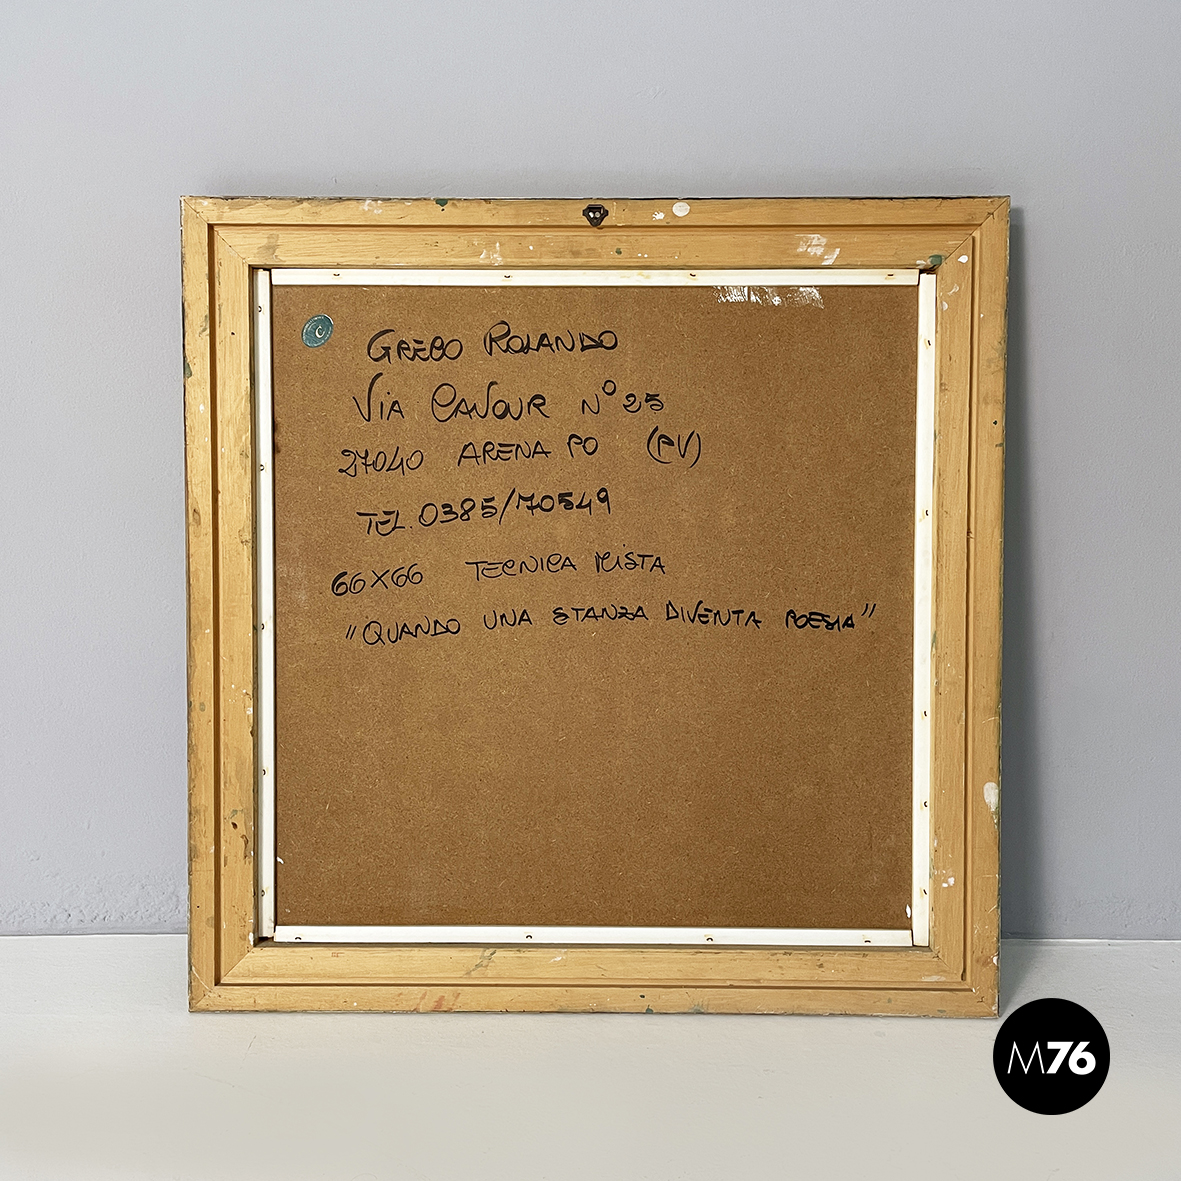 C
GREGO ROLANDO
VIA CAVOUR N° 25
27040 ARENA PO (PV)
TEL. 0385/70549
66X66 TECNICA MISTA
"QUANDO UNA STANZA DIVENTA POESIA"
M76